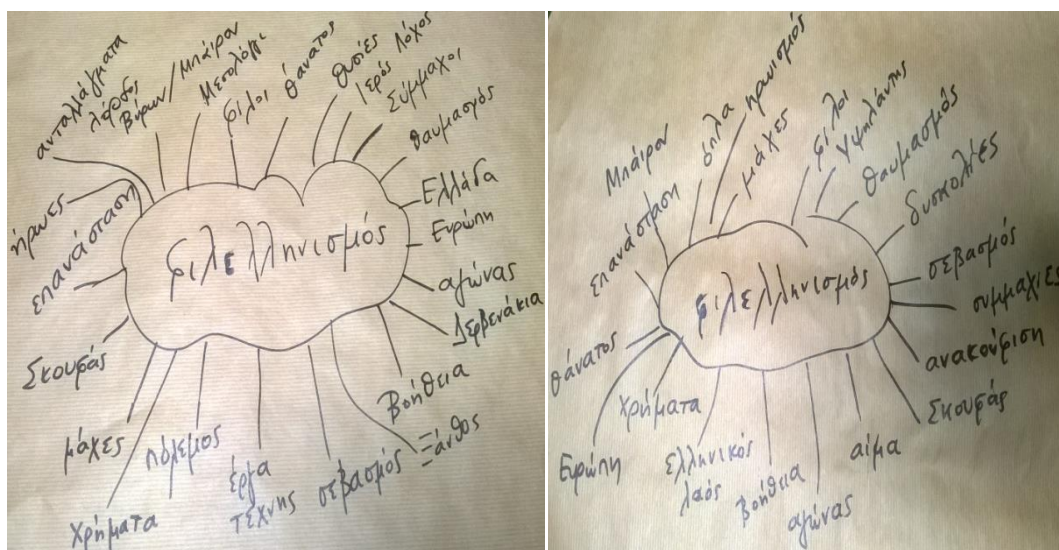 ανταλλάγματα
λάρδος
Βύρων/Μπάιρον
Μεσολόγγι
φίλοι
θάνατος
θυσίες
Ιερός Λόχος
Σύμμαχοι
θαυμασμός
Ελλάδα
Ευρώπη
αγώνας
Δερβενάκια
Βοήθεια
Ξάνθος
σεβασμός
έργα
τέχνης
πόλεμος
χρήματα
μάχες
Σκουφάς
επανάσταση
ήρωες
φιλελληνισμός
Μπάιρον
επανάσταση
όπλα
ηρωισμός
μάχες
φίλοι
Υψηλάντης
θαυμασμός
δυσκολίες
σεβασμός
συμμαχίες
ανακούφιση
Σκουφάς
αίμα
αγώνας
βοήθεια
ελληνικός
λαός
χρήματα
Ευρώπη
θάνατος
φιλελληνισμός